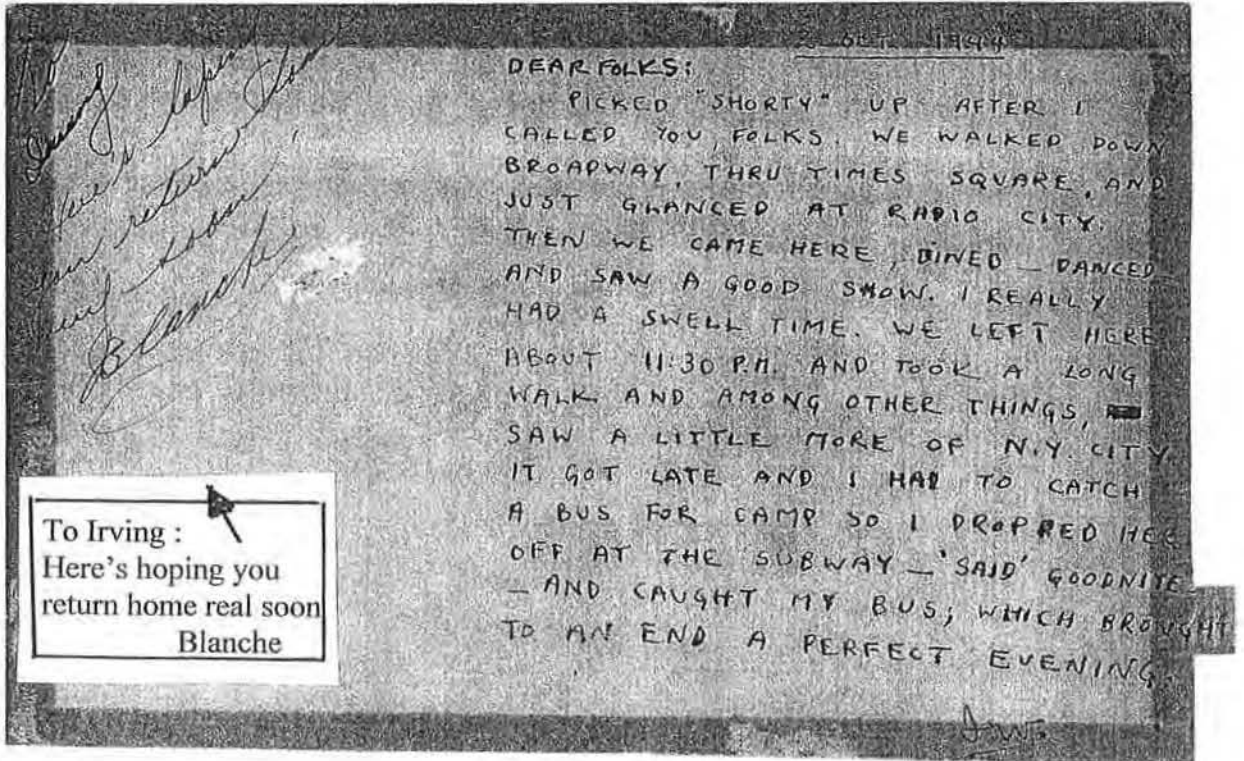 To
Irving
Here's hoping
you return home
real soon
Blanche
To Irving :
Here's hoping you
return home real soon
Blanche
OCT 1944
DEAR FOLKS:
PICKED "SHORTY" UP AFTER I
CALLED YOU, FOLKS. WE WALKED DOWN
BROADWAY, THRU TIMES SQUARE, AND
JUST GLANCED AT RADIO CITY.
THEN WE CAME HERE, DINED — DANCED —
AND SAW A GOOD SHOW. I REALLY
HAD A SWELL TIME. WE LEFT HERE
ABOUT 11:30 P.M. AND TOOK A LONG
WALK AND AMONG OTHER THINGS,
SAW A LITTLE MORE OF N.Y. CITY.
IT GOT LATE AND I HAD TO CATCH
A BUS FOR CAMP SO I DROPPED HER
OFF AT THE SUBWAY — 'SAID' GOODNITE —
— AND CAUGHT MY BUS; WHICH BROUGHT
TO AN END A PERFECT EVENING.
I.W.